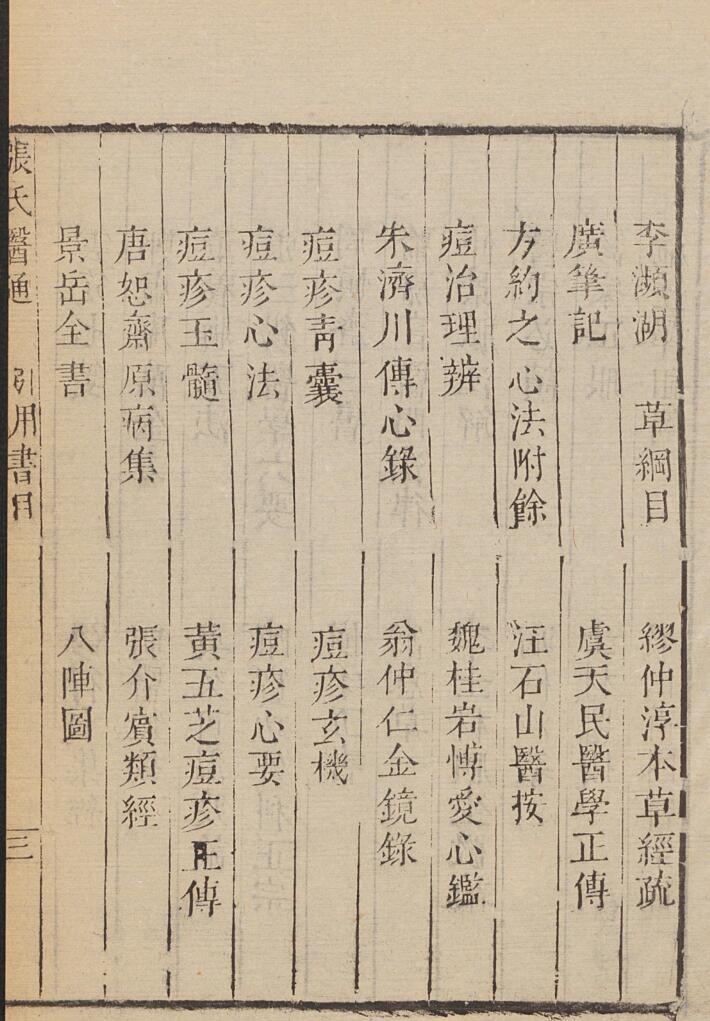 李瀕湖 草綱目
繆仲淳本草經疏
廣筆記
虞天民醫學正傳
方約之心法附餘
汪石山醫按
痘治理辨
魏桂岩博愛心鑑
朱濟川傳心錄
翁仲仁金鏡錄
痘疹靑囊
痘疹玄機
痘疹心法
痘疹心要
痘疹玉髓
黃五芝痘疹正傳
唐恕齋原病集
張介賓類經
景岳全書
八陣圖
張氏醫通 引用書目 三